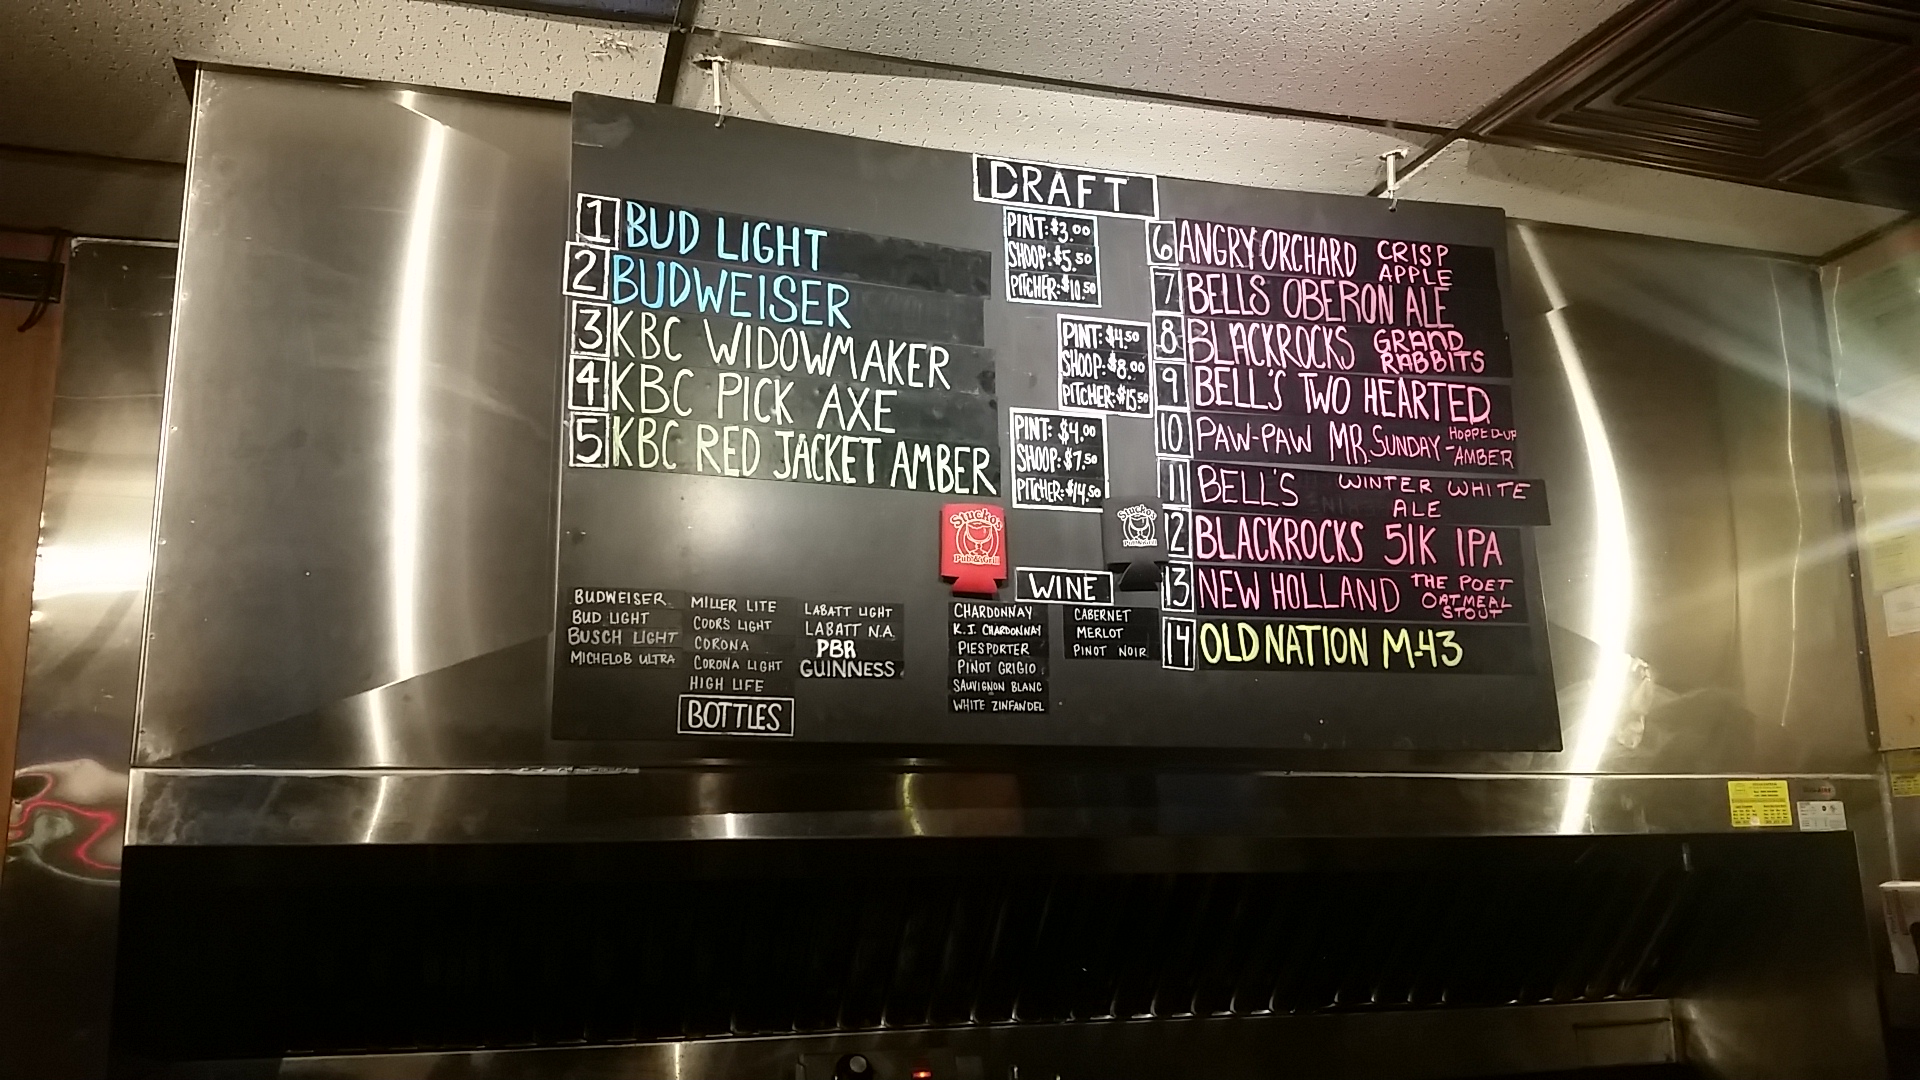 DRAFT
1 BUD LIGHT
2 BUDWEISER
3 KBC WIDOWMAKER
4 KBC PICK AXE
5 KBC RED JACKET AMBER
PINT: $3.00
SHOOP: $5.50
PITCHER: $10.50
PINT: $4.50
SHOOP: $8.00
PITCHER: $15.50
PINT: $4.00
SHOOP: $7.50
PITCHER: $14.50
6 ANGRY ORCHARD CRISP
APPLE
7 BELLS OBERON ALE
8 BLACKROCKS GRAND
RABBITS
9 BELL'S TWO HEARTED
10 PAW-PAW MR. SUNDAY HOPPED-UP
-AMBER
11 BELL'S WINTER WHITE
ALE
12 BLACKROCKS 51K IPA
13 NEW HOLLAND THE POET
OATMEAL
STOUT
14 OLD NATION M-43
Stucko's
Pub & Grill
Stucko's
Pub & Grill
BUDWEISER
BUD LIGHT
BUSCH LIGHT
MICHELOB ULTRA
MILLER LITE
COORS LIGHT
CORONA
CORONA LIGHT
HIGH LIFE
LABATT LIGHT
LABATT N.A.
PBR
GUINNESS
BOTTLES
WINE
CHARDONNAY
K.J. CHARDONNAY
PIESPORTER
PINOT GRIGIO
SAUVIGNON BLANC
WHITE ZINFANDEL
CABERNET
MERLOT
PINOT NOIR